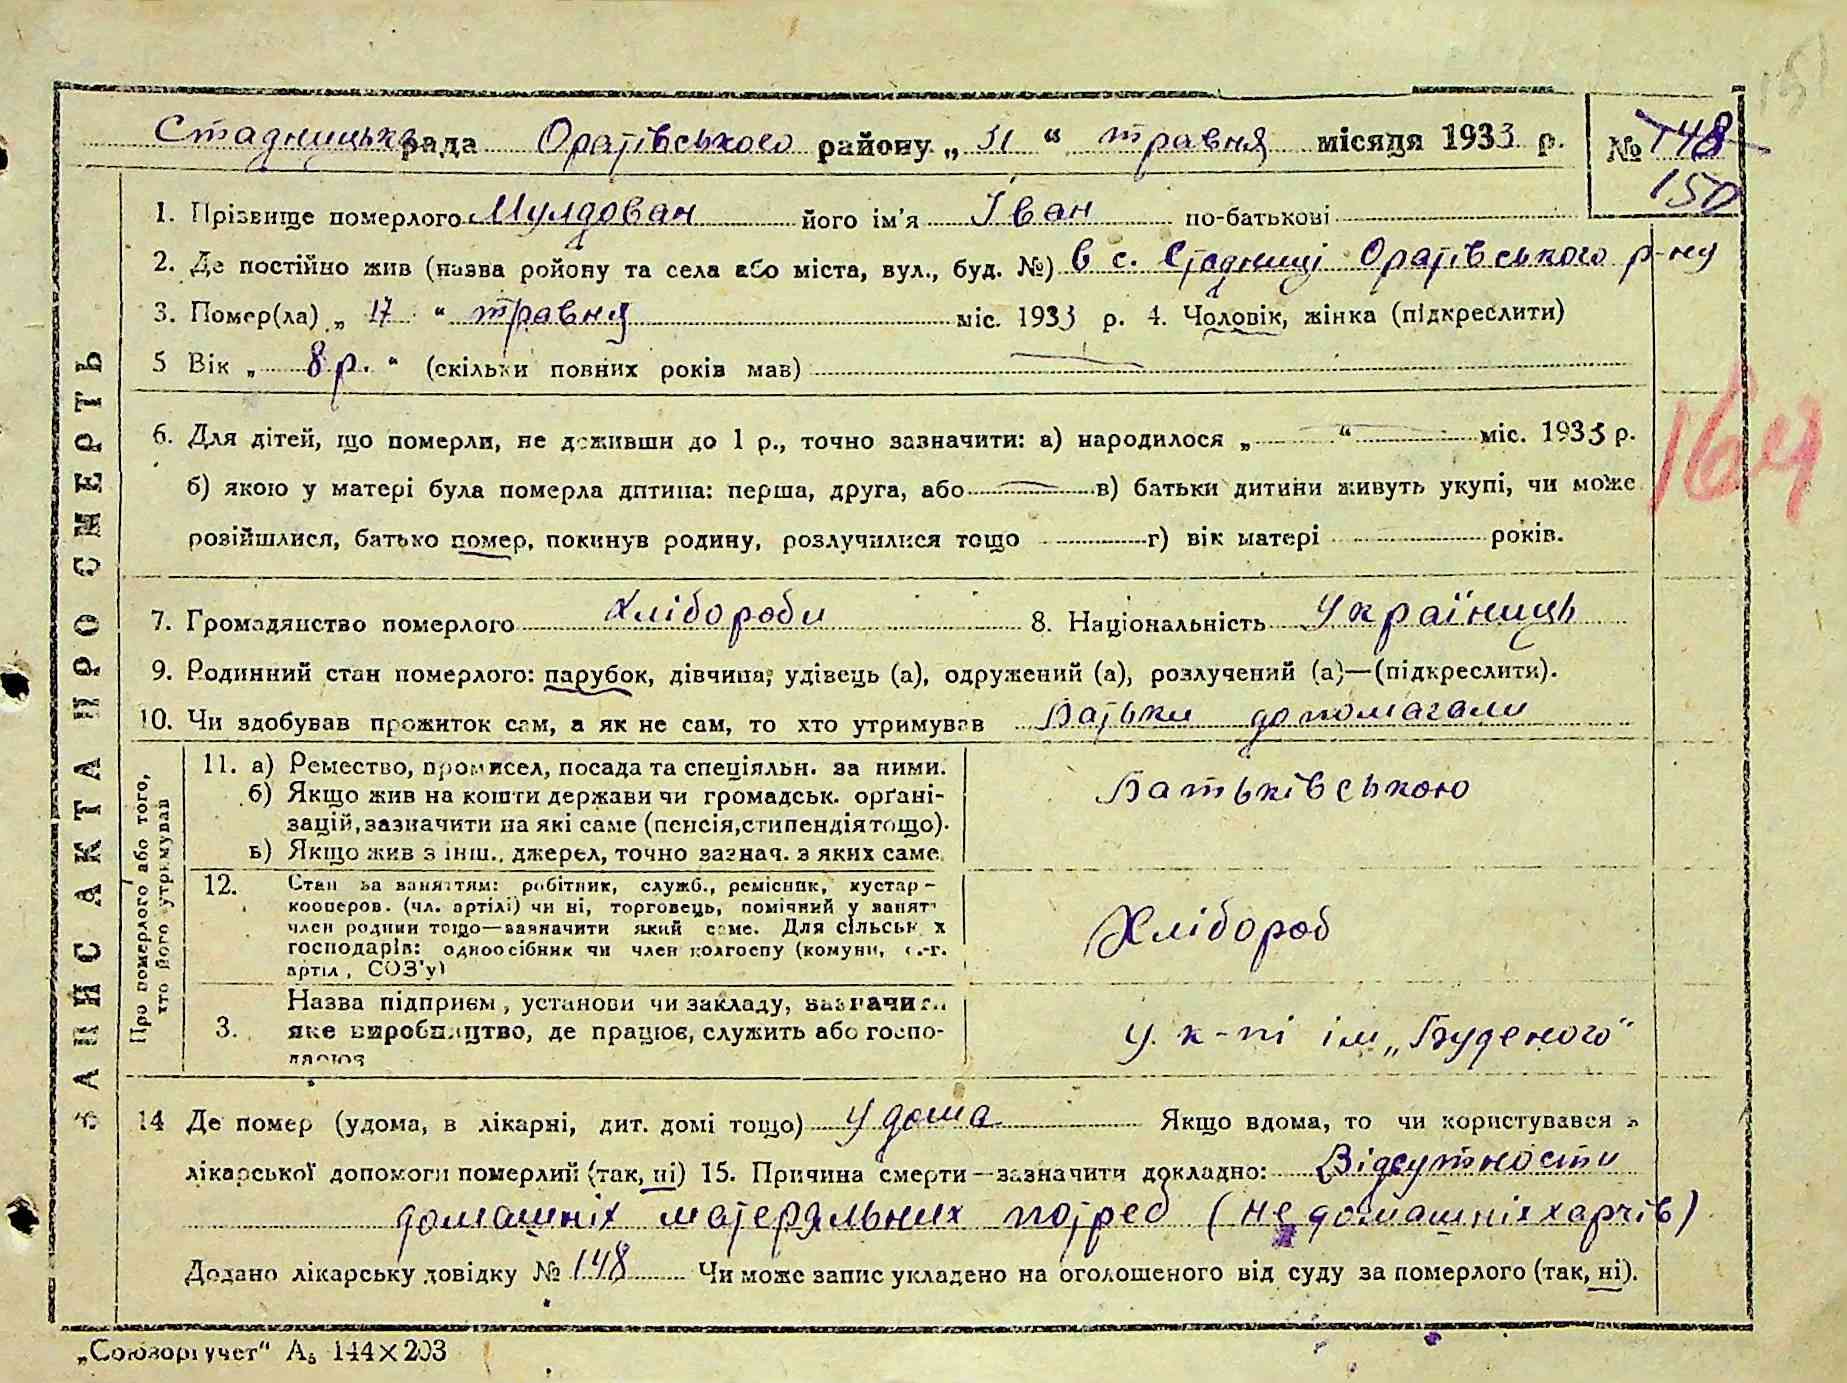 151
Стадницька рада Оратівського району „ 31 “ травня місяця 1933 р. № 148
150
1. Прізвище померлого Мулдован його ім'я Іван по-батькові
2. Де постійно жив (назва ройону та села або міста, вул., буд. №) в с. Стадниці Оратівського р-ну
3. Помер(ла) „ 17 “ травня міс. 1933 р. 4. Чоловік, жінка (підкреслити)
5 Вік „ 8 р. “ (скільки повних років мав)
6. Для дітей, що померли, не доживши до 1 р., точно зазначити: а) народилося „ “ міс. 1933 р.
б) якою у матері була померла дптина: перша, друга, або в) батьки дитини живуть укупі, чи може
розійшлися, батько помер, покинув родину, розлучилися тощо г) вік матері років.
164
7. Громадянство померлого Хлібороби 8. Національність Україниць
9. Родинний стан померлого: парубок, дівчина, удівець (а), одружений (а), розлучений (а)—(підкреслити).
10. Чи здобував прожиток сам, а як не сам, то хто утримував Батьки допомагали
ЗАПИС АКТА ПРО СМЕРТЬ
Про померлого або того,
хто його утримував
11. а) Ремество, промисел, посада та спеціяльн. за ними.
б) Якщо жив на кошти держави чи громадськ. орґані-
зацій, зазначити на які саме (пенсія, стипендія тощо).
в) Якщо жив з інш., джерел, точно зазнач. з яких саме.
Батьківською
12. Стан за заняттям: робітник, служб., ремісник, кустар-
кооперов. (чл. артілі) чи ні, торговець, помічний у занят
член родини тощо—зазначити який саме. Для сільськ х
господарів: одноосібник чи член колгоспу (комуни, с.-г.
артіл, СОЗ'у)
Хлібороб
3. Назва підприєм, установи чи закладу, зазначити
яке виробництво, де працює, служить або госпо-
дарює
У. к-пі ім „Буденого“
14 Де помер (удома, в лікарні, дит. домі тощо) У дома Якщо вдома, то чи користувався з
лікарської допомоги померлий (так, ні) 15. Причина смерти—зазначити докладно: Відсутности
домашніх матеряльних потреб (не домашніх харчів)
Додано лікарську довідку № 148 Чи може запис укладено на оголошеного від суду за померлого (так, ні).
„Союзоргучет“ А₅ 144×203